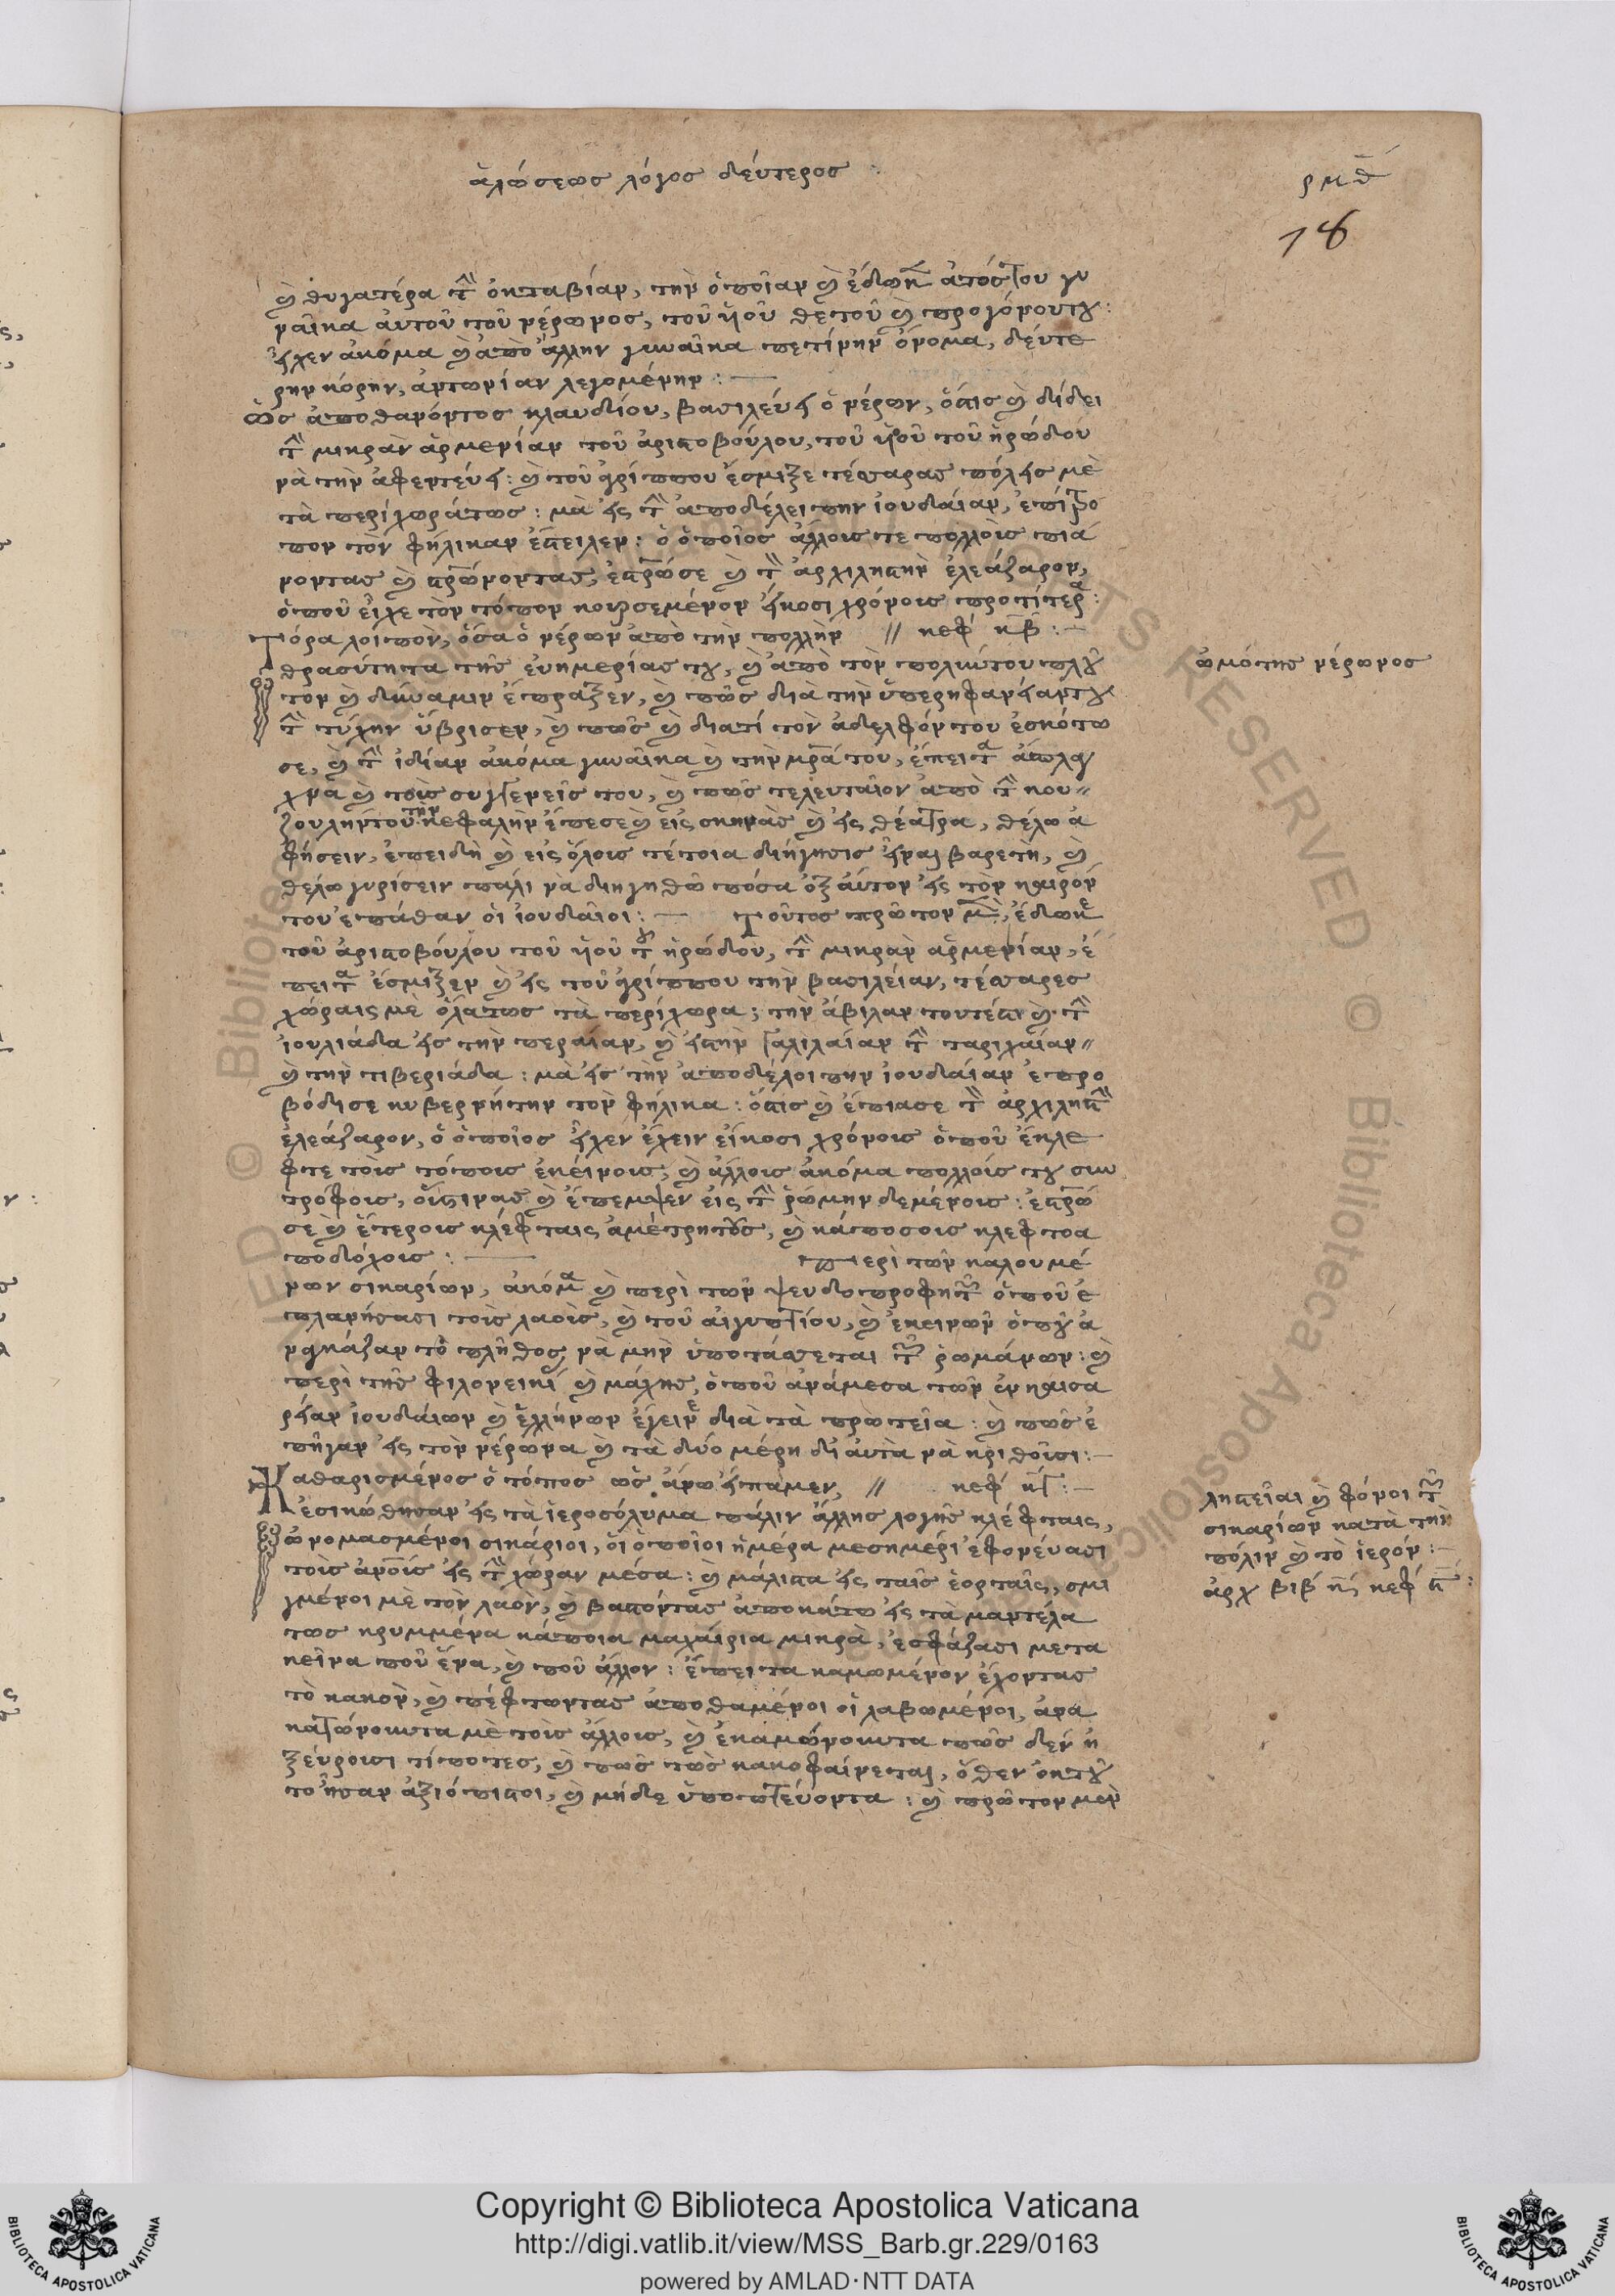 ἁλώσεως λόγος δεύτερος
ρμδ
78
καὶ θυγατέρα τὴν ὀκταβίαν, τὴν ὁποῖαν καὶ ἔδωκεν ἀπόστου γυ
ναῖκα αὐτοῦ τοῦ νέρωνος, τοῦ υἱοῦ θετοῦ καὶ προγόνουτου:
εἶχεν ἀκόμα καὶ ἀπὸ ἄλλην γυναῖκα πετίνην ὄνομα, δεύτε
ρην κόρην, ἀντωνίαν λεγομένην:
ὡς ἀποθανόντος κλαυδίου, βασιλεύει ὁ νέρων, ὅστις καὶ δίδει
τὴν μικρὰν ἀρμενίαν τοῦ ἀριστοβούλου, τοῦ υἱοῦ τοῦ ἡρώδου
νὰ τὴν ἀφεντεύει: καὶ τοῦ ἀγρίππου ἔσμιξε τέσσαρας πόλεις μὲ
τὰ περίχωράτως: μὰ εἰς τὴν ἀποδέλειπην ἰουδαίαν, ἐπίτρο
πον τὸν φήλικαν ἔστειλεν: ὁ ὁποῖος ἄλλοις τε πολλοῖς πιά
νοντας καὶ σταυρώνοντας, ἐσταύρωσε καὶ τὸν ἀρχιληστὴν ἐλεάζαρον,
ὁποῦ εἶχε τὸν τόπον κουρσεμένον εἴκοσι χρόνοις προτίτερα:
Τόρα λοίπον, ὅσα ὁ νέρων ἀπὸ τὴν πολλὴν // κεφ κβ:
θρασύτητα τῆς εὐημερίας του, καὶ ἀπὸ τὸν πολύντου πλοῦ
τον καὶ δύναμιν ἔπραξεν, καὶ πῶς διὰ τὴν ὑπερηφανείαντου
τὴν τύχην ὕβρισεν, καὶ πῶς καὶ διατί τὸν ἀδελφόν του ἐσκότω
σε, καὶ τὴν ἰδίαν ἀκόμα γυναῖκα καὶ τὴν μητέρα του, ἔπειτα
καὶ τοὶς συγγενεῖς του, καὶ πῶς τελευταῖον ἀπὸ τὴν κου-
ζουλήντου τὴν κεφαλὴν ἔπεσε καὶ εἰς σκηνὰς καὶ εἰς θέατρα, θέλω ἀ
φήσειν, ἐπειδὴ καὶ εἰς ὅλοις τέτοια διήγησις εἶναι βαρετὴ, καὶ
θέλω γυρίσειν πάλι νὰ διηγηθῶ πόσα ὀξ αὐτον εἰς τὸν καιρόν
του ἐπάθαν οἱ ἰουδαῖοι: Τοῦτος πρῶτον μὲν, ἔδωκε
τοῦ ἀριστοβούλου τοῦ υἱοῦ τοῦ ἡρώδου, τὴν μικρὰν ἀρμενίαν, ἔ
πειτα ἔσμιξεν καὶ εἰς τοῦ ἀγρίππου τὴν βασιλείαν, τέσσαρες
χώραις μὲ ὅλατως τὰ περίχωρα; τὴν ἄβιλαν τουτέστι καὶ τὴν
ἰουλιάδα εἰς τὴν περαίαν, καὶ εἰστὴν γαλιλαίαν τὴν ταριχαίαν
καὶ τὴν τιβεριάδα: μὰ εἰς τὴν ἀποδέλοιπην ἰουδαίαν ἐπρο
βόδισε κυβερνήτην τὸν φήλικα: ὅστις καὶ ἔπιασε τὸν ἀρχιληστὴν
ἐλεάζαρον, ὁ ὁποῖος εἶχεν ἔχειν εἴκοσι χρόνοις ὁποῦ ἔκλε
φτε τοὶς τόποις ἐκείνοις, καὶ ἄλλοις ἀκόμα πολλοῖς του συν
τρόφοις, οὕστινας καὶ ἔπεμψεν εἰς τὴν ῥώμην δεμένοις: ἐσταύρω
σε καὶ ἕτεροις κλέφταις ἀμέτρητους, καὶ κάποσοις κλεφτοα
ποδόχοις: Περὶ τῶν καλουμέ
νων σικαρίων, ἀκόμα καὶ περὶ τῶν ψευδοπροφητῶν ὁποῦ ἐ
πλανήσασι τοὶς λαοὶς, καὶ τοῦ αἰγυπτίου, καὶ ἐκεινῶν ὁποῦ ἀ
ναγκάζαν τὸ πλῆθος νὰ μὴν ὑποτάσσεται τῶν ῥωμάνων: καὶ
περὶ τῆς φιλονεικίας καὶ μάχης, ὁποῦ ἀνάμεσα τῶν ἐν καισα
ρείαν ἰουδαίων καὶ ἑλλήνων ἐγεινε διὰ τὰ πρωτεῖα: καὶ πῶς ἐ
πῆγαν εἰς τὸν νέρωνα καὶ τὰ δύο μέρη δι αὐτὰ νὰ κριθοῦσι:
Καθαρισμένος ὁ τόπος ὡς ἄνω εἴπαμεν, // κεφ κγ:
ἐσικώθησαν εἰς τὰ ἱεροσόλυμα πάλιν ἄλλης λογῆς κλέφταις,
ὠνομασμένοι σικάριοι, οἱ ὁποῖοι ἡμέρα μεσημέρι ἐφονεύασι
τοὶς ἀνθρώποις εἰς τὴν χώραν μέσα: καὶ μάλιστα εἰς ταῖς ἑορταῖς, σμι
γμένοι μὲ τὸν λαὸν, καὶ βαστόντας ἀποκάτω εἰς τὰ μαντέλα
τως κρυμμένα κάποια μαχαίρια μικρὰ, ἐσφάζασι μετα
κεῖνα ποῦ ἕνα, καὶ ποῦ ἄλλον: ἔπειτα καμωμένον ἔχοντας
τὸ κακὸν, καὶ πέφτωντας ἀποθαμένοι οἱ λαβωμένοι, ἀνα
κατώνουντα μὲ τοὶς ἄλλοις, καὶ ἐκαμώνουντα πῶς δεν ἠ
ξεύρουσι τίποτες, καὶ πῶς τὼς κακοφαίνεται, ὅθεν
το ἦσαν ἀξιόπιστοι, καὶ μήδε ὑποπτεύοντα: καὶ πρῶτον μὲν
ὠμότης νέρωνος
ληστεῖαι καὶ φόνοι τῶν
σικαρίων κατὰ τὴν
πόλιν καὶ τὸ ἱερόν:
Copyright © Biblioteca Apostolica Vaticana
http://digi.vatlib.it/view/MSS_Barb.gr.229/0163
powered by AMLAD·NTT DATA
BIBLIOTECA APOSTOLICA VATICANA
BIBLIOTECA APOSTOLICA VATICANA